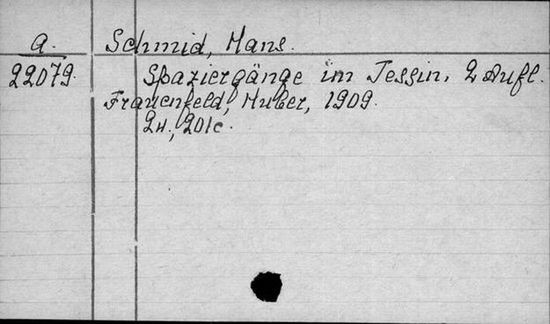 a. Schmid, Hans.
22079. Spaziergänge im Tessin. 2 Aufl.
Frauenfeld, Huber, 1909.
2н., 201с.